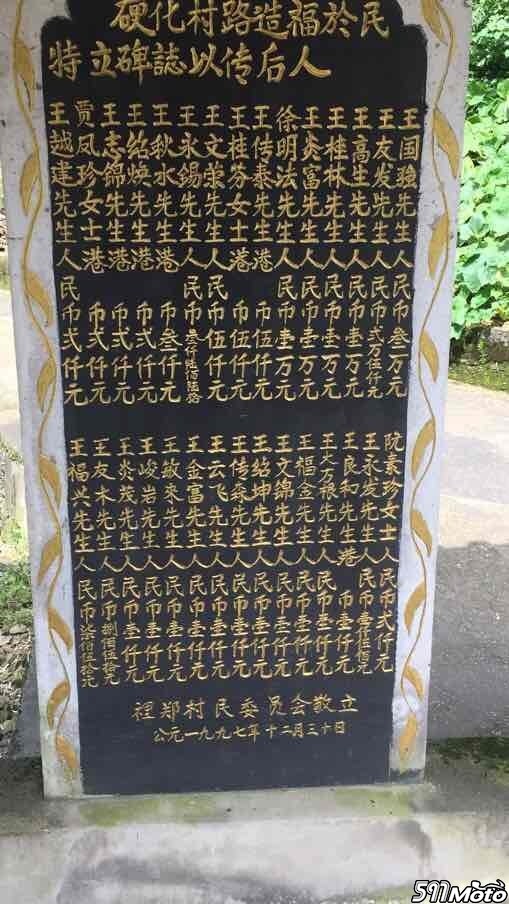 硬化村路造福於民
特立碑誌以传后人
王国强先生人民币叁万元
王友发先生人民币弍万伍仟元
王高生先生人民币壹万元
王桂林先生人民币壹万元
王炎富先生人民币壹万元
徐明法先生人民币壹万元
王传泰先生港币伍仟元
王桂芬女士港币伍仟元
王文荣先生人民币伍仟元
王永锡先生人民币叁仟陆佰陆拾
王秋水先生港币叁仟元
王绍焕先生港币弍仟元
王志锦先生港币弍仟元
贾凤珍女士港币弍仟元
王越建先生人民币弍仟元
阮素珍女士人民币弍仟元
王永发先生人民币壹仟伍佰元
王良和先生港币壹仟元
王大方根先生人民币壹仟元
王福金先生人民币壹仟元
王文锦先生人民币壹仟元
王绍坤先生人民币壹仟元
王传森先生人民币壹仟元
王云飞先生人民币壹仟元
王金富先生人民币壹仟元
王敏来先生人民币壹仟元
王峻岩先生人民币壹仟元
王炎茂先生人民币壹仟元
王友木先生人民币捌佰伍拾元
王福兴先生人民币柒佰伍拾元
裡郑村民委员会敬立
公元一九九七年十二月三十日
591Moto